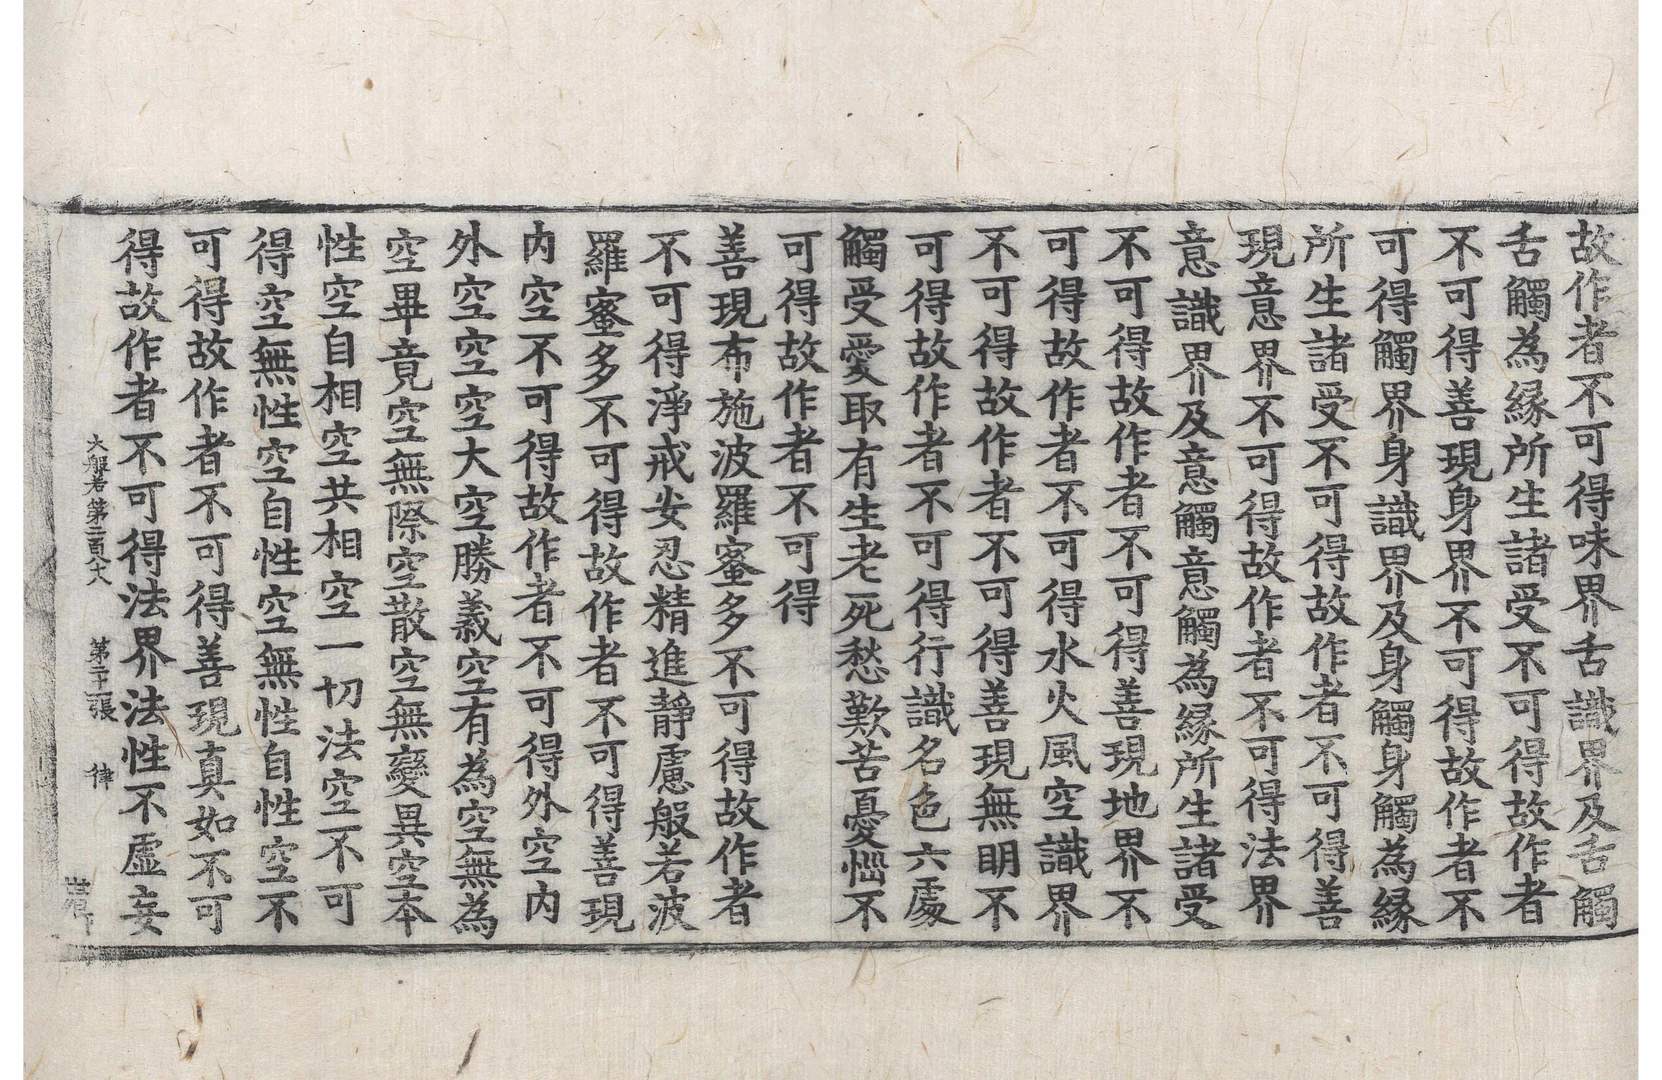 故作者不可得味界舌識界及舌觸
舌觸為緣所生諸受不可得故作者
不可得善現身界不可得故作者不
可得觸界身識界及身觸身觸為緣
所生諸受不可得故作者不可得善
現意界不可得故作者不可得法界
意識界及意觸意觸為緣所生諸受
不可得故作者不可得善現地界不
可得故作者不可得水火風空識界
不可得故作者不可得善現無明不
可得故作者不可得行識名色六處
觸受愛取有生老死愁歎苦憂惱不
可得故作者不可得
善現布施波羅蜜多不可得故作者
不可得淨戒安忍精進靜慮般若波
羅蜜多不可得故作者不可得善現
內空不可得故作者不可得外空內
外空空空大空勝義空有為空無為
空畢竟空無際空散空無變異空本
性空自相空共相空一切法空不可
得空無性空自性空無性自性空不
可得故作者不可得善現真如不可
得故作者不可得法界法性不虛妄
大般若第二百六十八 第二十一張 律